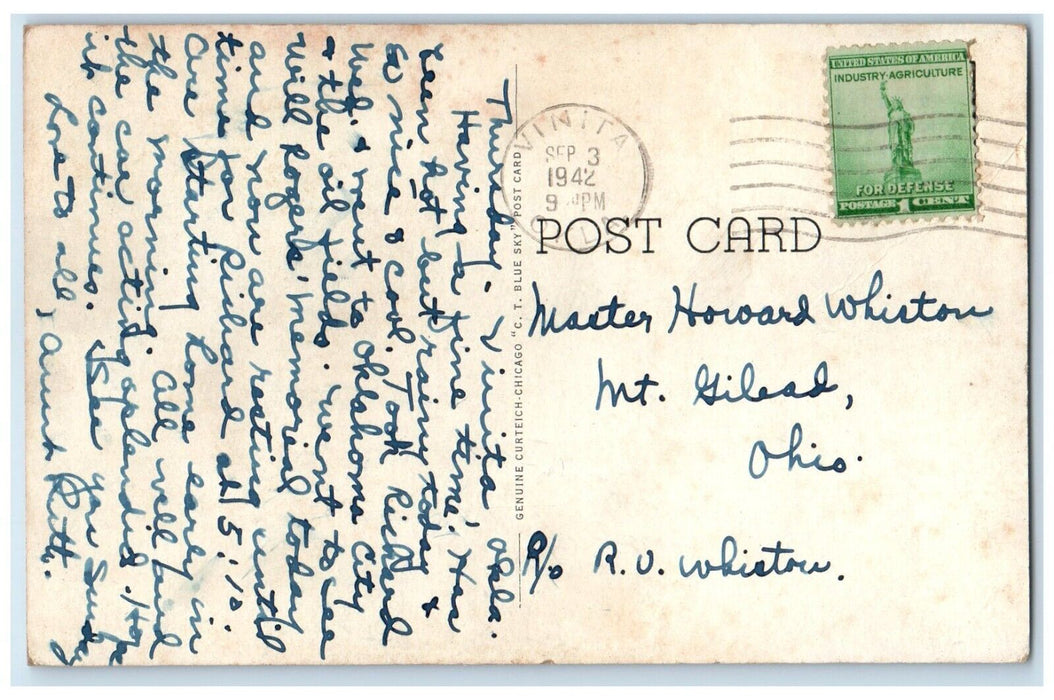 Thursday - Vinita Okla.
Having a fine time. Has
been hot but rainy today &
so nice & cool. Took Richard
Wed. & went to Oklahoma City
& the oil fields. Went to see
Will Rogers' Memorial today
and now are resting until
time for Richard at 5:10.
Are starting home early in
the morning. All well and
the car acting splendid. Hope
it continues. See you Sunday
Love to all, Aunt Ruth.
GENUINE CURTEICH-CHICAGO "C. T. BLUE SKY" POST CARD
VINITA
SEP 3
1942
9 PM
UNITED STATES OF AMERICA
INDUSTRY-AGRICULTURE
FOR DEFENSE
POSTAGE 1 CENT
POST CARD
Master Howard Whiston
Mt. Gilead,
Ohio.
℅ R. V. Whiston.